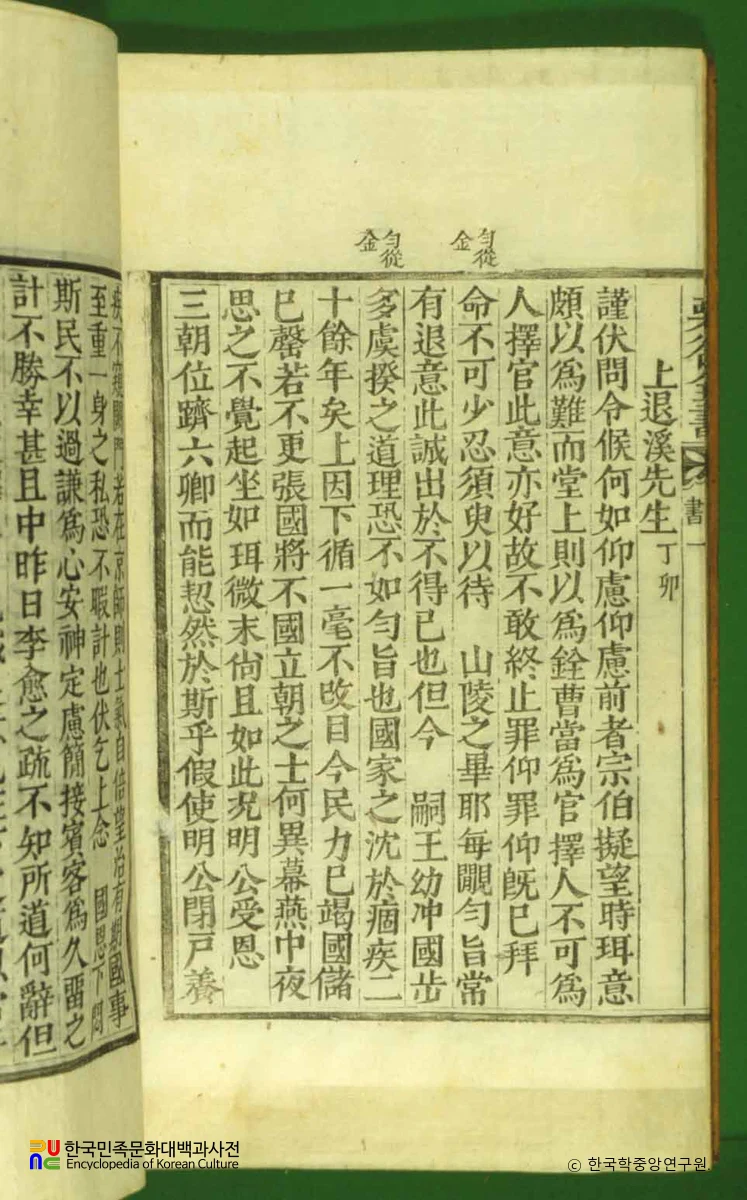 書一
上退溪先生 丁卯
謹伏問令候何如仰慮仰慮前者宗伯擬望時珥意
頗以爲難而堂上則以爲銓曹當爲官擇人不可爲
人擇官此意亦好故不敢終止罪仰罪仰旣已拜
命不可少忍須臾以待 山陵之畢耶每覵勻旨常
勻從
金
有退意此誠出於不得已也但今 嗣王幼冲國步
多虞揆之道理恐不如勻旨也國家之沈於痼疾二
勻從
金
十餘年矣上因下循一毫不改目今民力已竭國儲
已罄若不更張國將不國立朝之士何異幕燕中夜
思之不覺起坐如珥微末尙且如此況明公受恩
三朝位躋六卿而能恝然於斯乎假使明公閉戶養
疾不窺門若在京師則士氣自倍望治有期國事
至重一身之私恐不暇計也伏乞上念 國恩下悶
斯民不以過謙爲心安神定慮簡接賓客爲久留之
計不勝幸甚且中昨日李愈之疏不知所道何辭但
한국민족문화대백과사전
Encyclopedia of Korean Culture
© 한국학중앙연구원